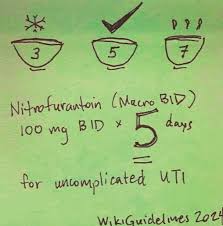 3 5 7
Nitrofurantoin (MacroBID)
100 mg BID × 5 days
for uncomplicated UTI
WikiGuidelines 2024